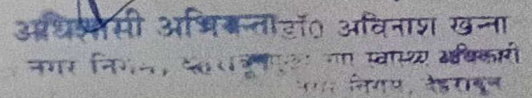 अधिशासी अभियन्ता डॉ0 अविनाश खन्ना
नगर निगम, नगर स्वास्थ्य अधिकारी
नगर निगम, देहरादून